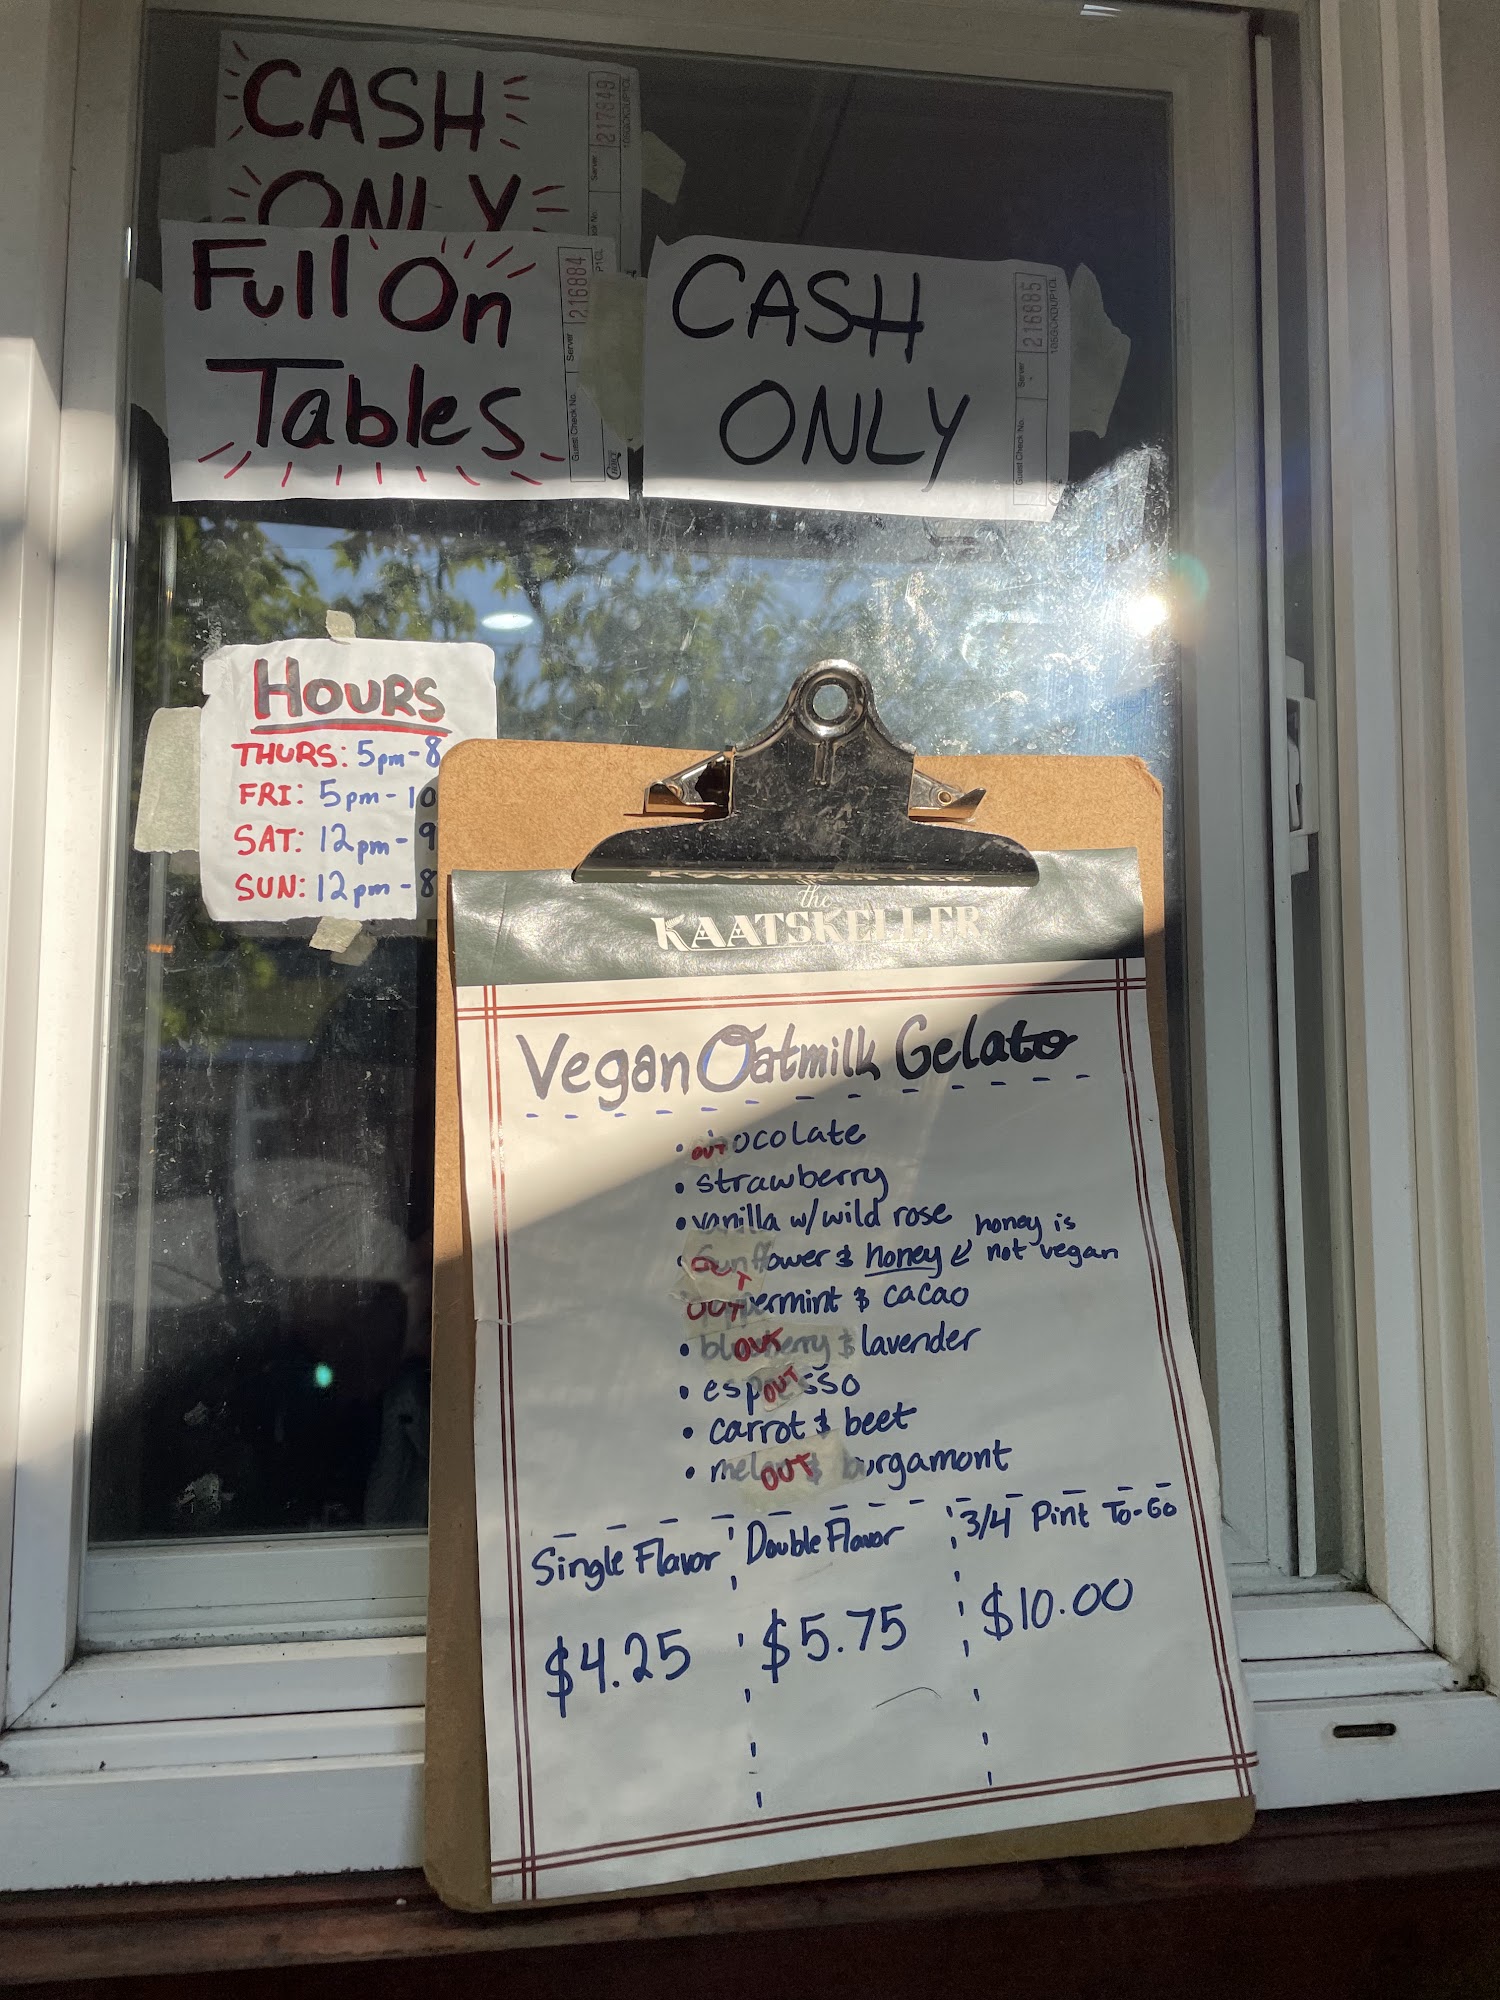 CASH
ONLY
Server 217849
Full On
Tables
Guest Check No. Server 216884
CASH
ONLY
Guest Check No. Server 216885
HOURS
THURS: 5pm-8
FRI: 5pm-10
SAT: 12pm-9
SUN: 12pm-8
the
KAATSKELLER
Vegan Oatmilk Gelato
• OUT ocolate
• strawberry
• vanilla w/ wild rose
• OUT flower & honey
honey is
not vegan
OUT ermint & cacao
• blueberry & lavender OUT
• espresso OUT
• carrot & beet
• melon & burgamont OUT
Single Flavor
$4.25
Double Flavor
$5.75
3/4 Pint To-Go
$10.00